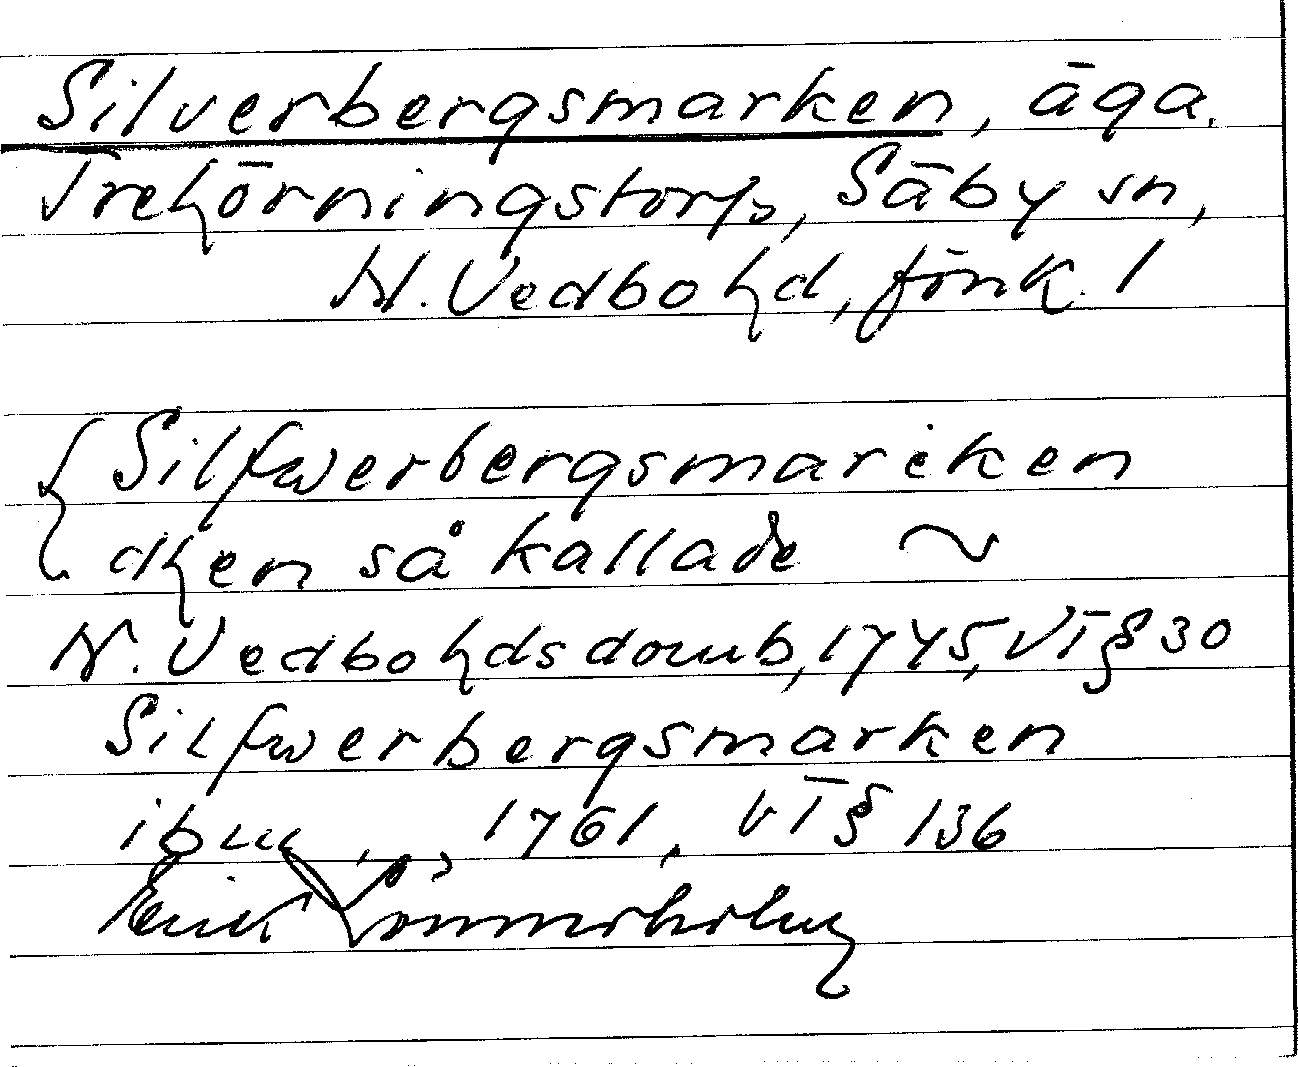 Silverbergsmarken, äga.
Trehörningstorp, Säby sn,
N. Vedbo hd, förk. 1
Silfwerbergsmarcken
then så kallade ~
N. Vedbo hds domb, 1745, VI § 30
Silfwerbergsmarken
ibm, 1761, VI § 136
Erik Sommerholm